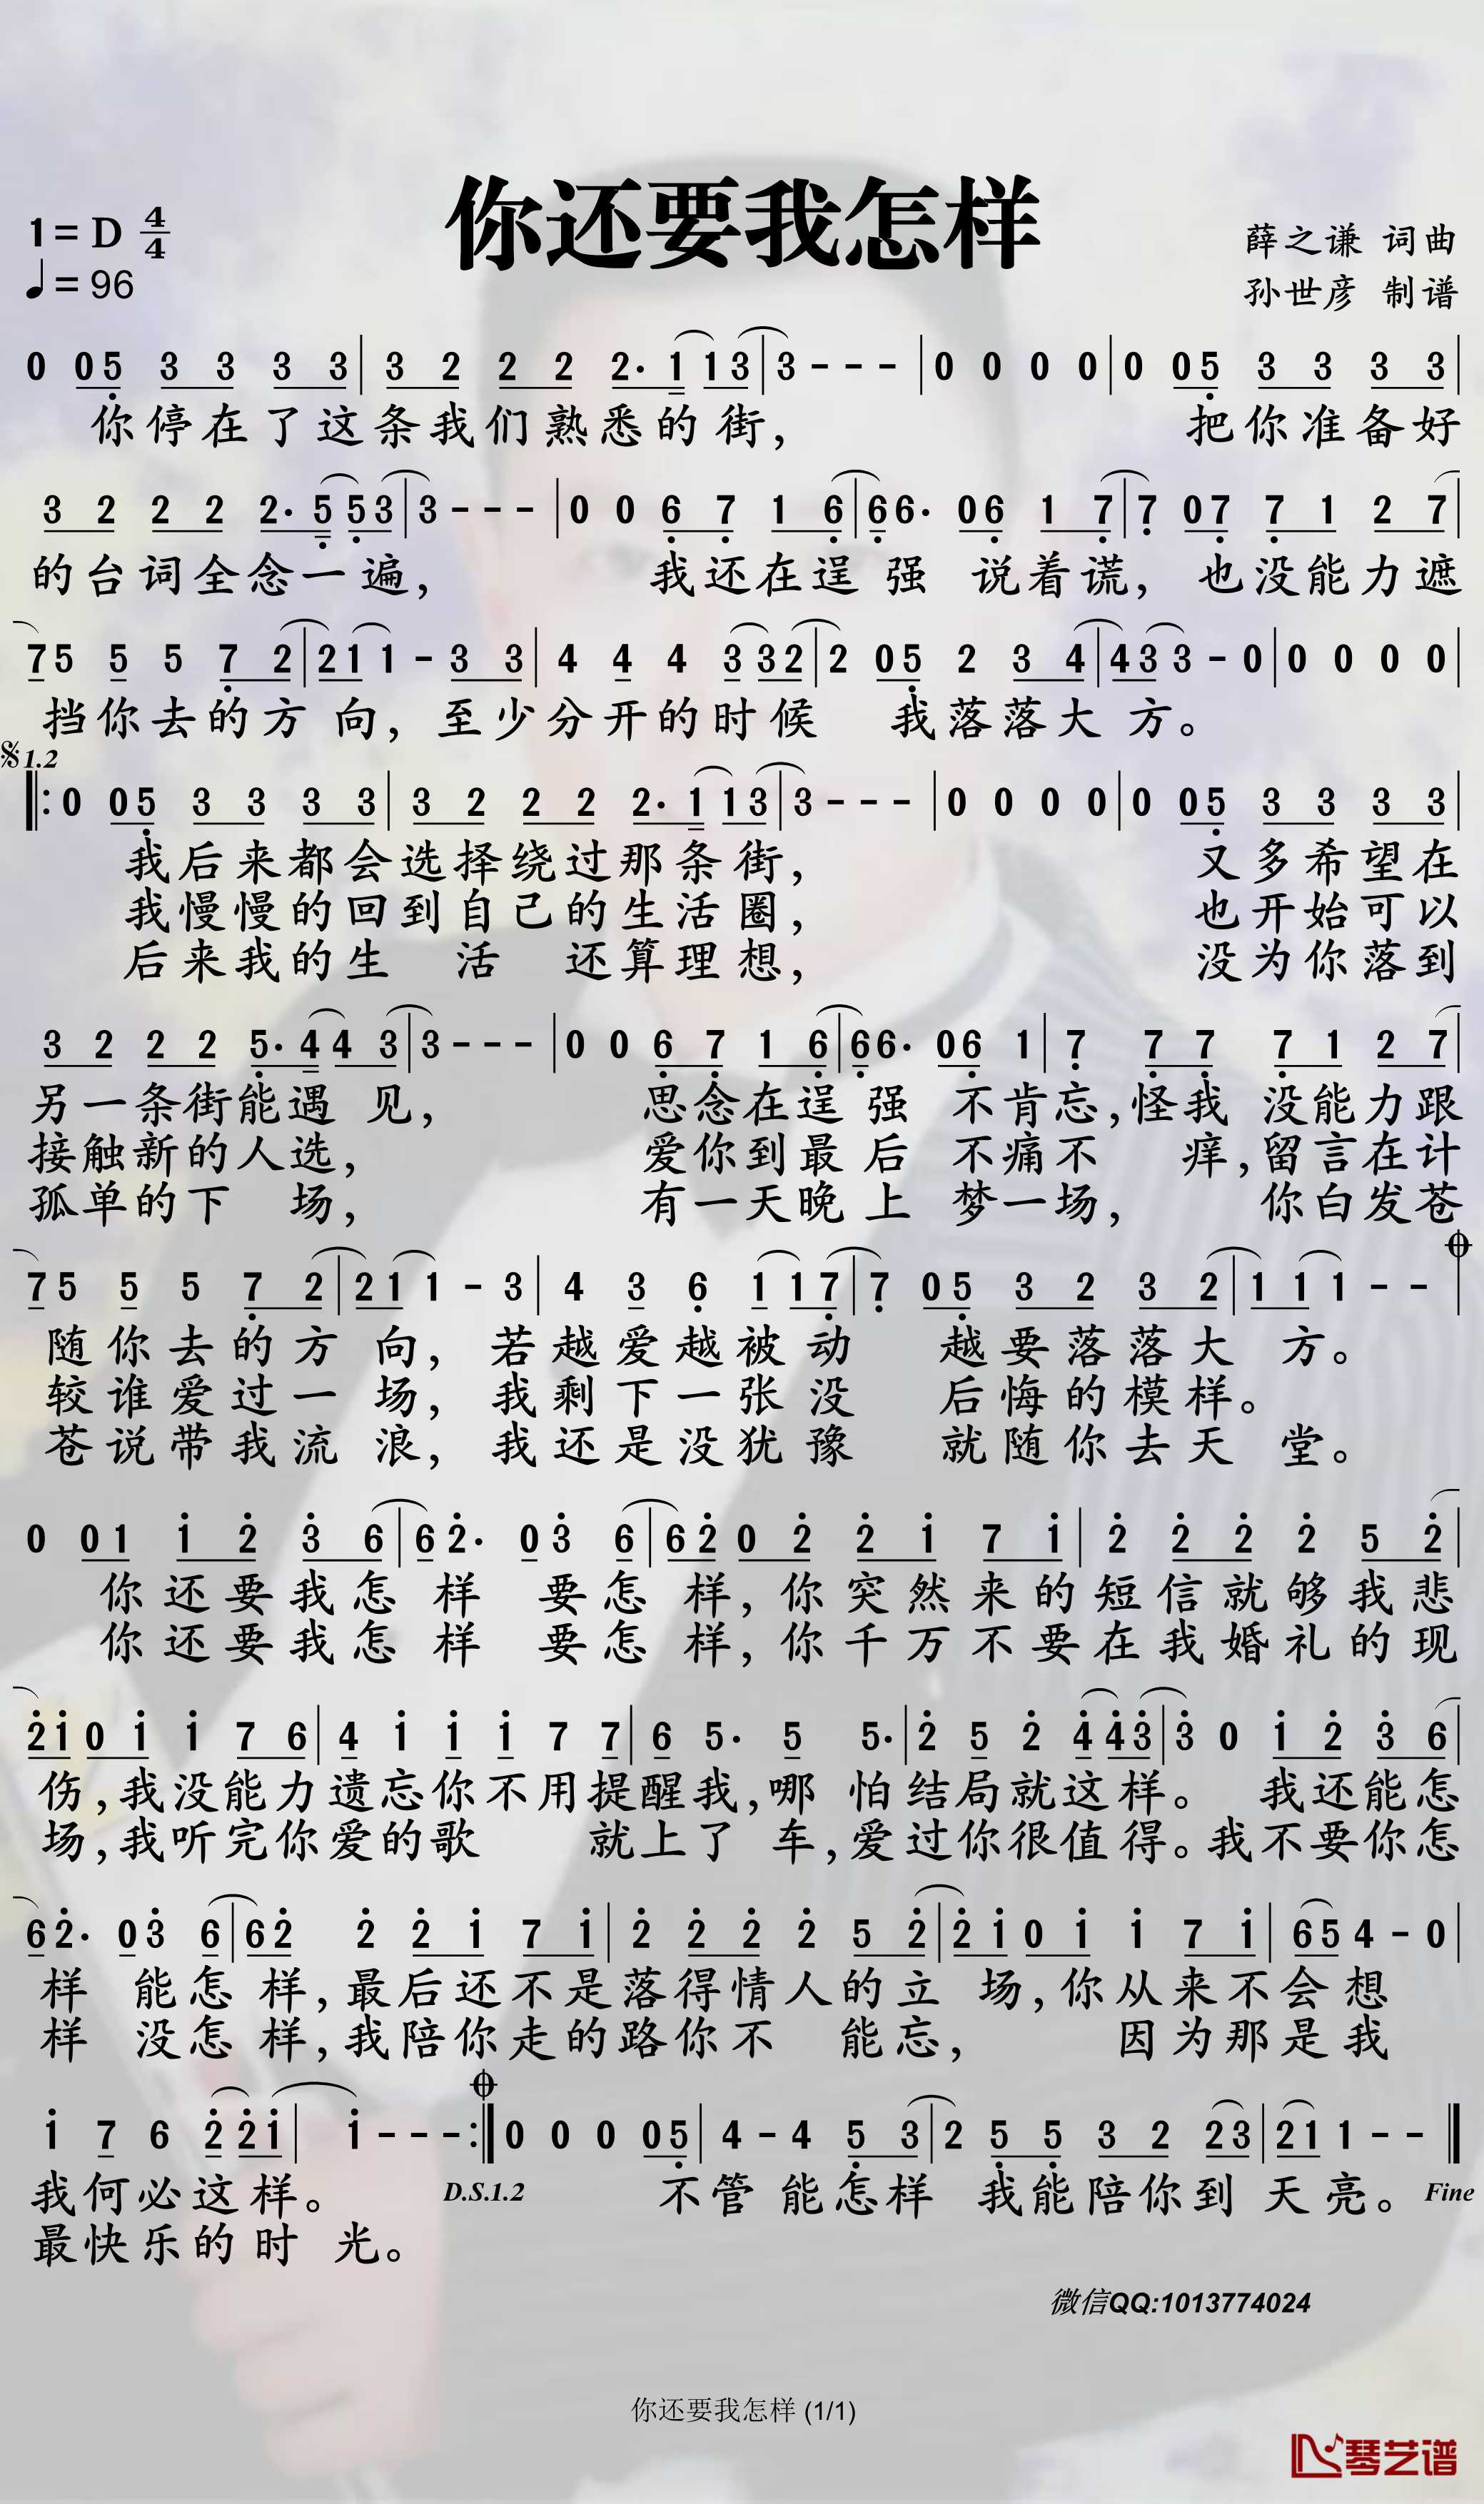 你还要我怎样
1=D 4/4
♩=96
薛之谦 词曲
孙世彦 制谱
0 05 33 33 | 32 22 2·1 13 | 3 - - - | 0 0 0 0 | 0 05 33 33 |
你停在了这条我们熟悉的街, 把你准备好
32 22 2·5 53 | 3 - - - | 0 0 67 16 | 66· 06 17 | 7 07 71 27 |
的台词全念一遍, 我还在逞强 说着谎, 也没能力遮
75 5 5 72 | 21 1 - 33 | 4 4 4 3 32 | 2 05 2 34 | 43 3 - 0 | 0 0 0 0 |
挡你去的方向, 至少分开的时候 我落落大方。
𝄋1.2
‖: 0 05 33 33 | 32 22 2·1 13 | 3 - - - | 0 0 0 0 | 0 05 33 33 |
我后来都会选择绕过那条街, 又多希望在
我慢慢的回到自己的生活圈, 也开始可以
后来我的生 活 还算理想, 没为你落到
32 22 5·4 43 | 3 - - - | 0 0 67 16 | 66· 06 1 | 7 77 71 27 |
另一条街能遇见, 思念在逞强 不肯忘,怪我 没能力跟
接触新的人选, 爱你到最后 不痛不 痒,留言在计
孤单的下 场, 有一天晚上 梦一场, 你白发苍
75 5 5 72 | 21 1 - 3 | 4 3 6 1 17 | 7 05 32 32 | 11 1 - - 𝄌
随你去的方向, 若越爱越被动 越要落落大方。
较谁爱过一场, 我剩下一张没 后悔的模样。
苍说带我流浪, 我还是没犹豫 就随你去天堂。
0 01 12 36 | 62· 03 6 | 62 02 21 71 | 2 22 2 52 |
你还要我怎样 要怎样, 你突然来的短信就够我悲
你还要我怎样 要怎样, 你千万不要在我婚礼的现
21 01 1 76 | 4 1 1 1 7 7 | 6 5· 5 5· | 2 5 2 4 43 | 3 0 12 36 |
伤,我没能力遗忘你不用提醒我,哪怕结局就这样。 我还能怎
场,我听完你爱的歌 就上了车,爱过你很值得。我不要你怎
62· 03 6 | 62 2 21 71 | 2 22 2 52 | 21 01 1 71 | 65 4 - 0 |
样 能怎样,最后还不是落得情人的立场,你从来不会想
样 没怎样,我陪你走的路你不 能忘, 因为那是我
1 7 6 2 21 | 1 - - - :‖ 𝄌 0 0 0 05 | 4 - 4 53 | 2 55 32 23 | 21 1 - - ‖
我何必这样。 D.S.1.2 不管能怎样 我能陪你到天亮。 Fine
最快乐的时光。
微信QQ:1013774024
你还要我怎样 (1/1)
琴艺谱